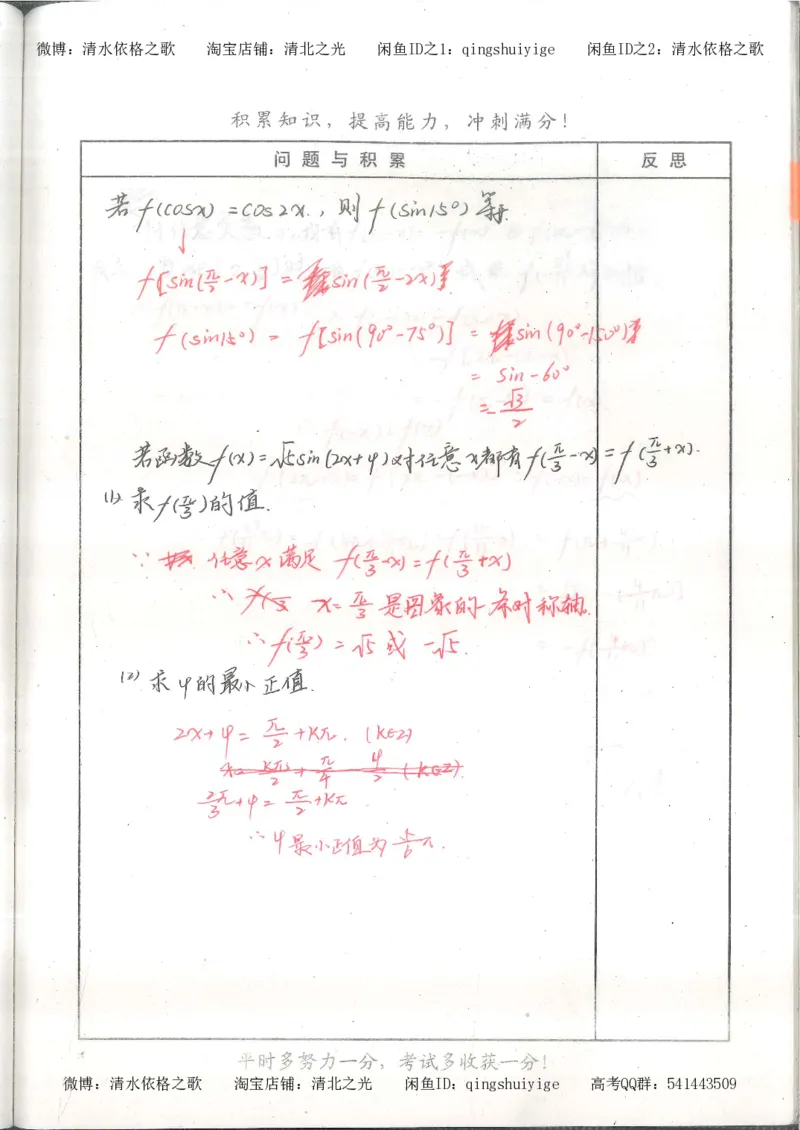 微博：清水依格之歌 淘宝店铺：清北之光 闲鱼ID之1：qingshuiyige 闲鱼ID之2：清水依格之歌
积累知识，提高能力，冲刺满分！
问题与积累 反思
若f(cosx)=cos2x.，则f(sin15°)等于.
f[sin(π/2-x)]=sin(π/2-2x)
f(sin15°)= f[sin(90°-75°)] = sin(90°-150°)
= sin-60°
=-√3/2
若函数f(x)=√5sin(2x+φ)对任意x都有f(π/3-x)=f(π/3+x).
(1)求f(π/3)的值.
∵ 任意x满足 f(π/3-x)=f(π/3+x)
∴ x=π/3是图象的一条对称轴.
∴f(π/3)=√5或-√5.
(2)求φ的最小正值.
2x+φ=π/2+kπ.(k∈Z)
x=kπ/2+π/4-φ/2(k∈Z)
2π/3+φ=π/2+kπ
∴φ最小正值为5/6π.
平时多努力一分，考试多收获一分！
微博：清水依格之歌 淘宝店铺：清北之光 闲鱼ID：qingshuiyige 高考QQ群：541443509